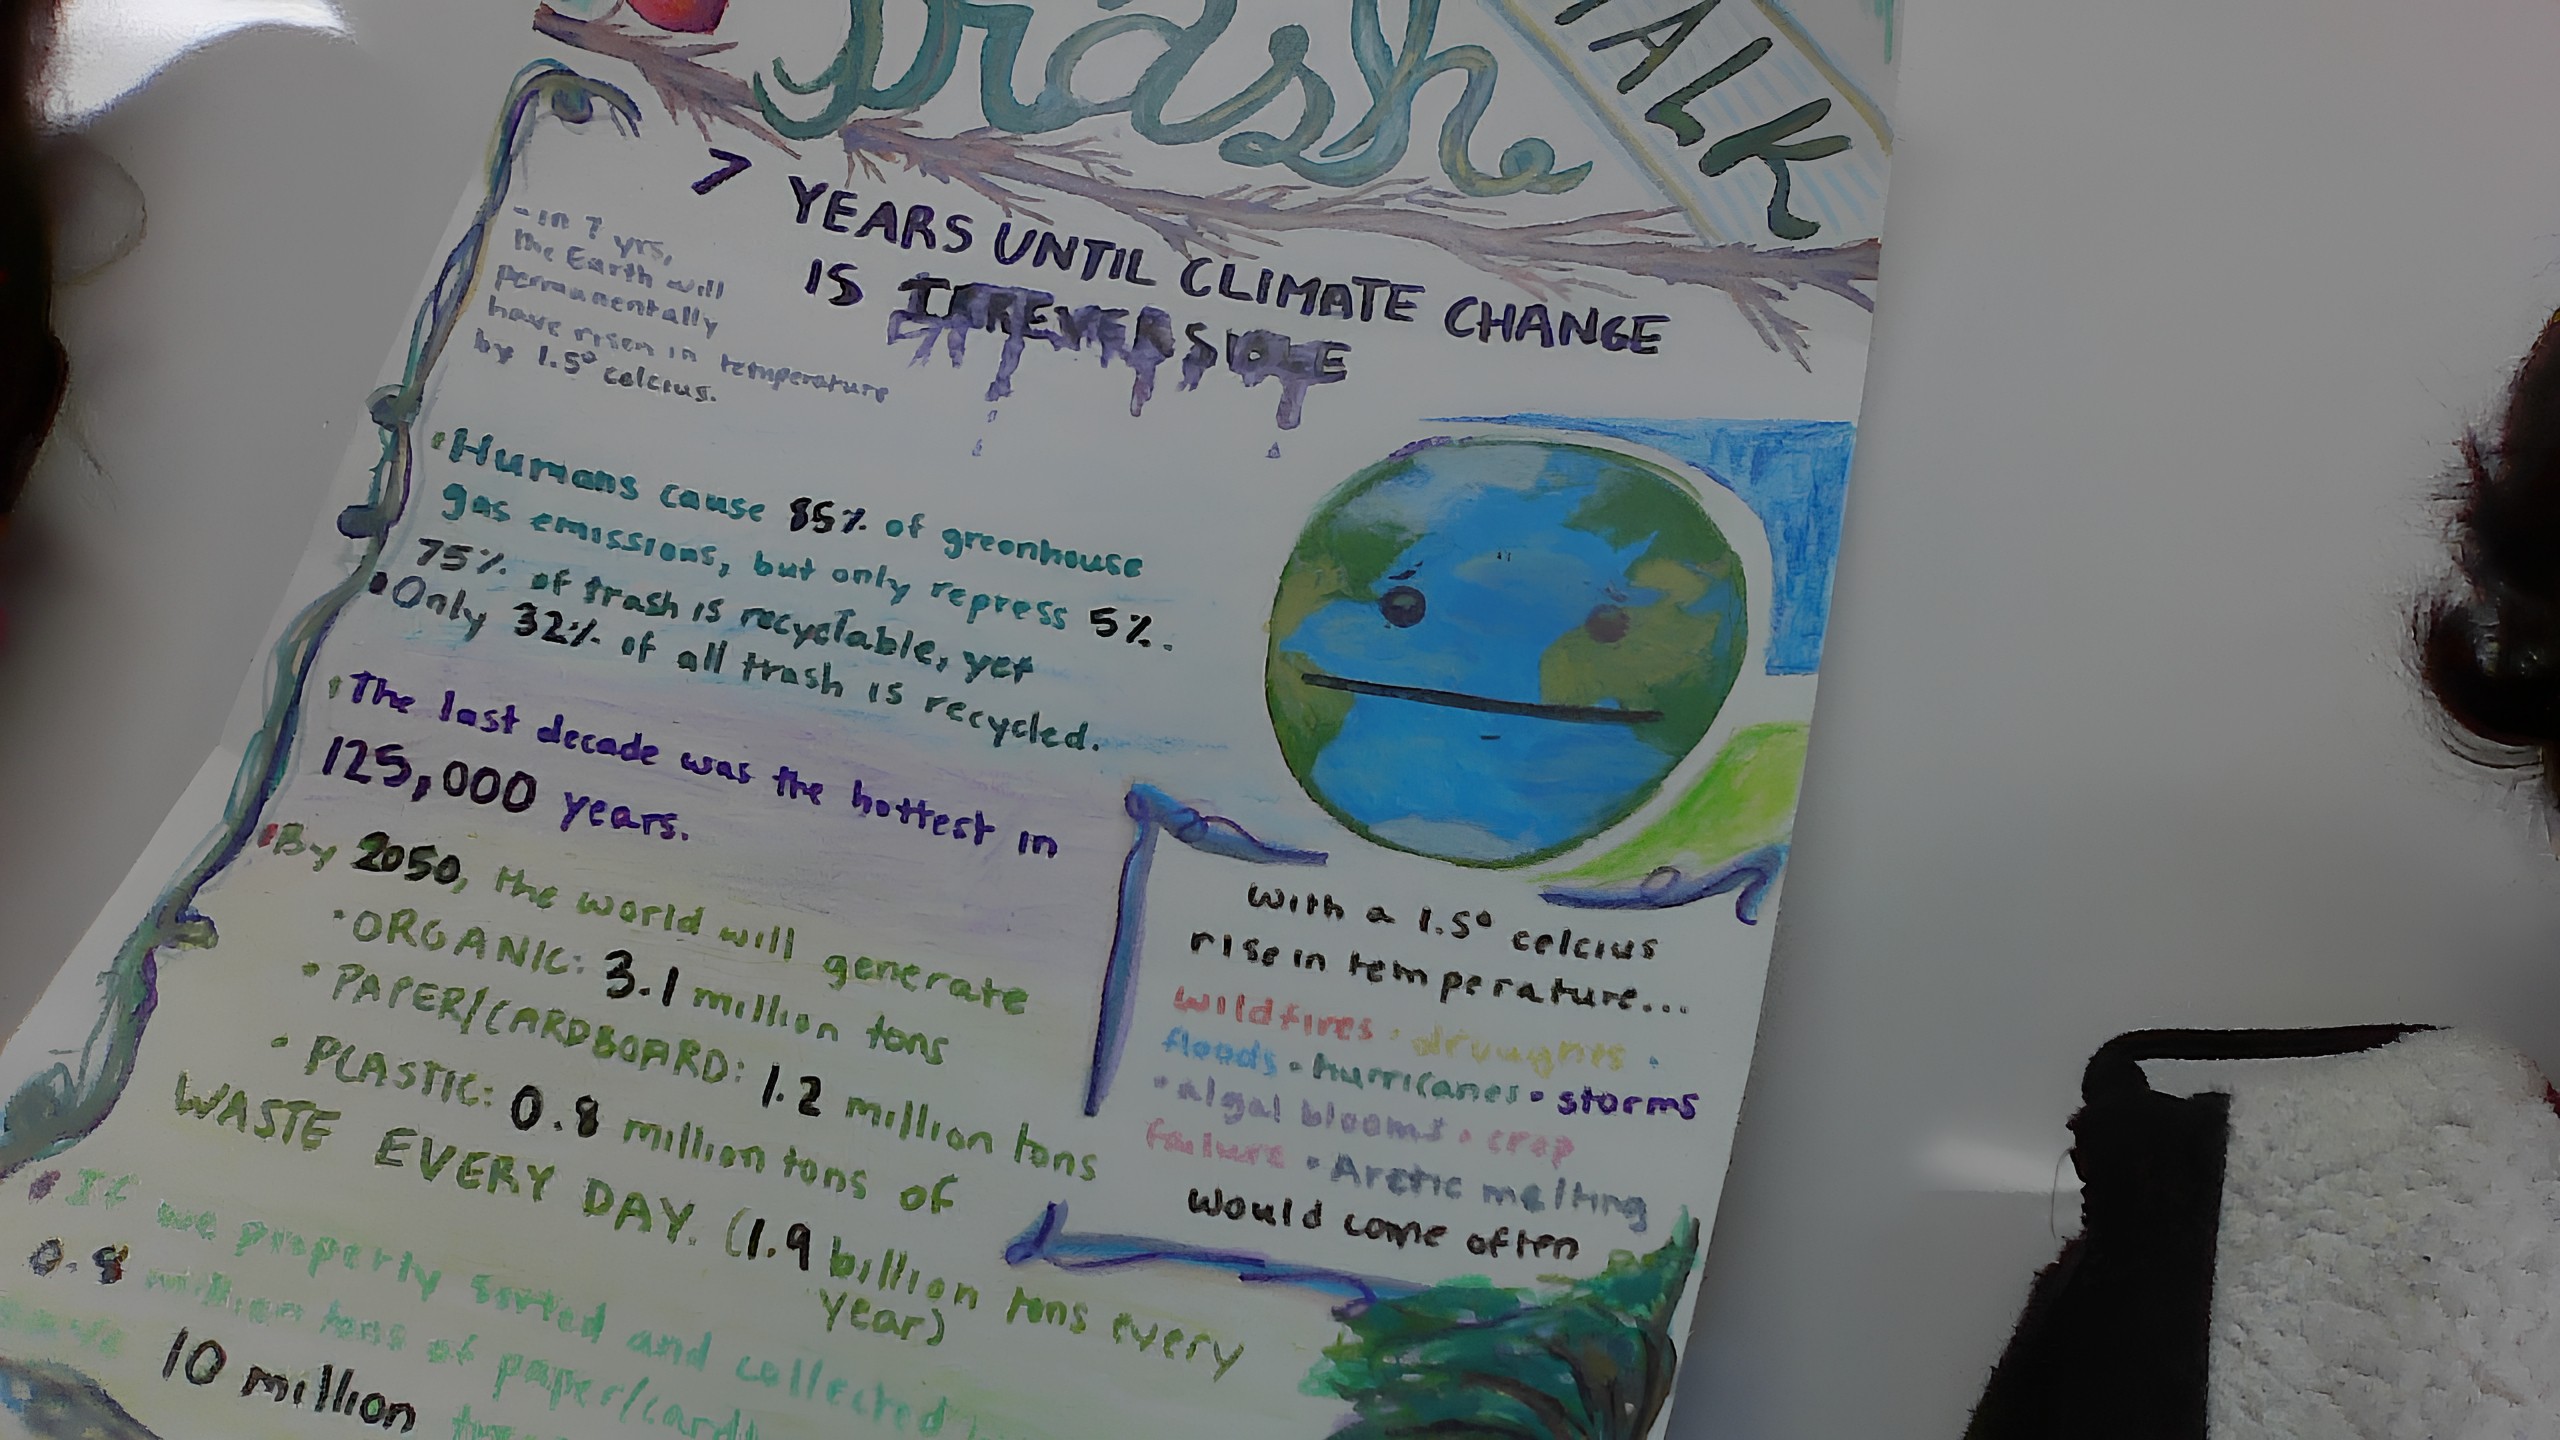 Trash
TALK
7 YEARS UNTIL CLIMATE CHANGE
IS IRREVERSIBLE
- in 7 yrs,
the Earth will
permanentally
have risen in temperature
by 1.5° celcius.
• Humans cause 85% of greenhouse
gas emissions, but only repress 5%.
75% of trash is recyclable, yet
• Only 32% of all trash is recycled.
• The last decade was the hottest in
125,000 years.
• By 2050, the world will generate
• ORGANIC: 3.1 million tons
• PAPER/CARDBOARD: 1.2 million tons
• PLASTIC: 0.8 million tons of
WASTE EVERY DAY. (1.9 billion tons every
year)
• If we properly sorted and collected
0.8 million tons of paper/
10 million
With a 1.5° celcius
rise in temperature...
wildfires • droughts •
floods • hurricanes • storms
• algal blooms • crop
failure • Arctic melting
would come often